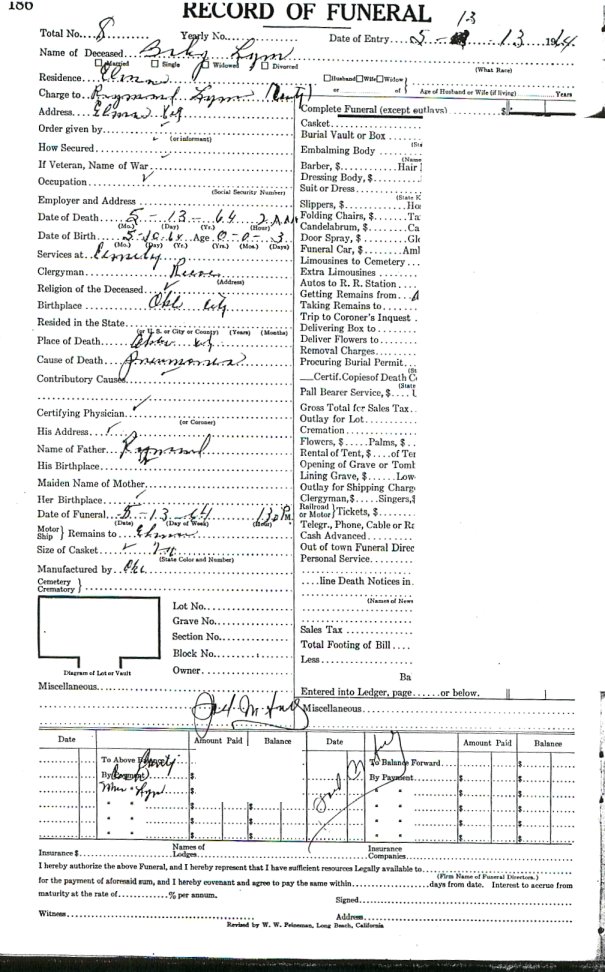 186
RECORD OF FUNERAL
13
Total No. 8 Yearly No. Date of Entry 5- -13 1964
Name of Deceased Baby Lynn
Married Single Widowed Divorced (What Race)
Residence Elmer Husband Wife Widow
or of Age of Husband or Wife (if living) Years
Charge to Raymond Lynn
Address Elmer
Order given by
(or informant)
How Secured
If Veteran, Name of War
Occupation
(Social Security Number)
Employer and Address
Date of Death 5-13-64 2
(Mo.) (Day) (Yr.) (Hour)
Date of Birth 5-10-64 Age 0-0-3
(Mo.) (Day) (Yr.) (Yrs.) (Mon.) (Days)
Services at
Clergyman
(Address)
Religion of the Deceased
Birthplace Okla City
Resided in the State
(or U. S. or City or County) (Years) (Months)
Place of Death
Cause of Death Pneumonia
Contributory Causes
Certifying Physician
(or Coroner)
His Address
Name of Father Raymond
His Birthplace
Maiden Name of Mother
Her Birthplace
Date of Funeral 5-13-64 1:30 PM
(Date) (Day of Week) (Hour)
Motor Ship } Remains to Elmer
Size of Casket
(State Color and Number)
Manufactured by
Cemetery Crematory }
Lot No.
Grave No.
Section No.
Block No.
Owner
Diagram of Lot or Vault
Miscellaneous
Complete Funeral (except outlays) $
Casket
Burial Vault or Box
(Sta
Embalming Body
(Name
Barber, $ Hair
Dressing Body, $
Suit or Dress
(State K
Slippers, $ Ho
Folding Chairs, $ Ta
Candelabrum, $ Ca
Door Spray, $ Glo
Funeral Car, $ Aml
Limousines to Cemetery
Extra Limousines
Autos to R. R. Station
Getting Remains from
Taking Remains to
Trip to Coroner's Inquest
Delivering Box to
Deliver Flowers to
Removal Charges
Procuring Burial Permit
(St
Certif. Copies of Death C
(State
Pall Bearer Service, $
Gross Total for Sales Tax
Outlay for Lot
Cremation
Flowers, $ Palms, $
Rental of Tent, $ of Ter
Opening of Grave or Tomb
Lining Grave, $ Low
Outlay for Shipping Charg
Clergyman, $ Singers, $
Railroad or Motor } Tickets, $
Telegr., Phone, Cable or Ra
Cash Advanced
Out of town Funeral Direc
Personal Service
line Death Notices in
(Names of News
Sales Tax
Total Footing of Bill
Less
Ba
Entered into Ledger, page or below.
Miscellaneous
Date Amount Paid Balance Date Amount Paid Balance
To Above Balance To Balance Forward $
By Payment $ By Payment $
Insurance $ Names of Lodges Insurance Companies
I hereby authorize the above Funeral, and I hereby represent that I have sufficient resources Legally available to
(Firm Name of Funeral Directors.)
for the payment of aforesaid sum, and I hereby covenant and agree to pay the same within days from date. Interest to accrue from
maturity at the rate of % per annum. Signed
Witness Address
Revised by W. W. Feineman, Long Beach, California